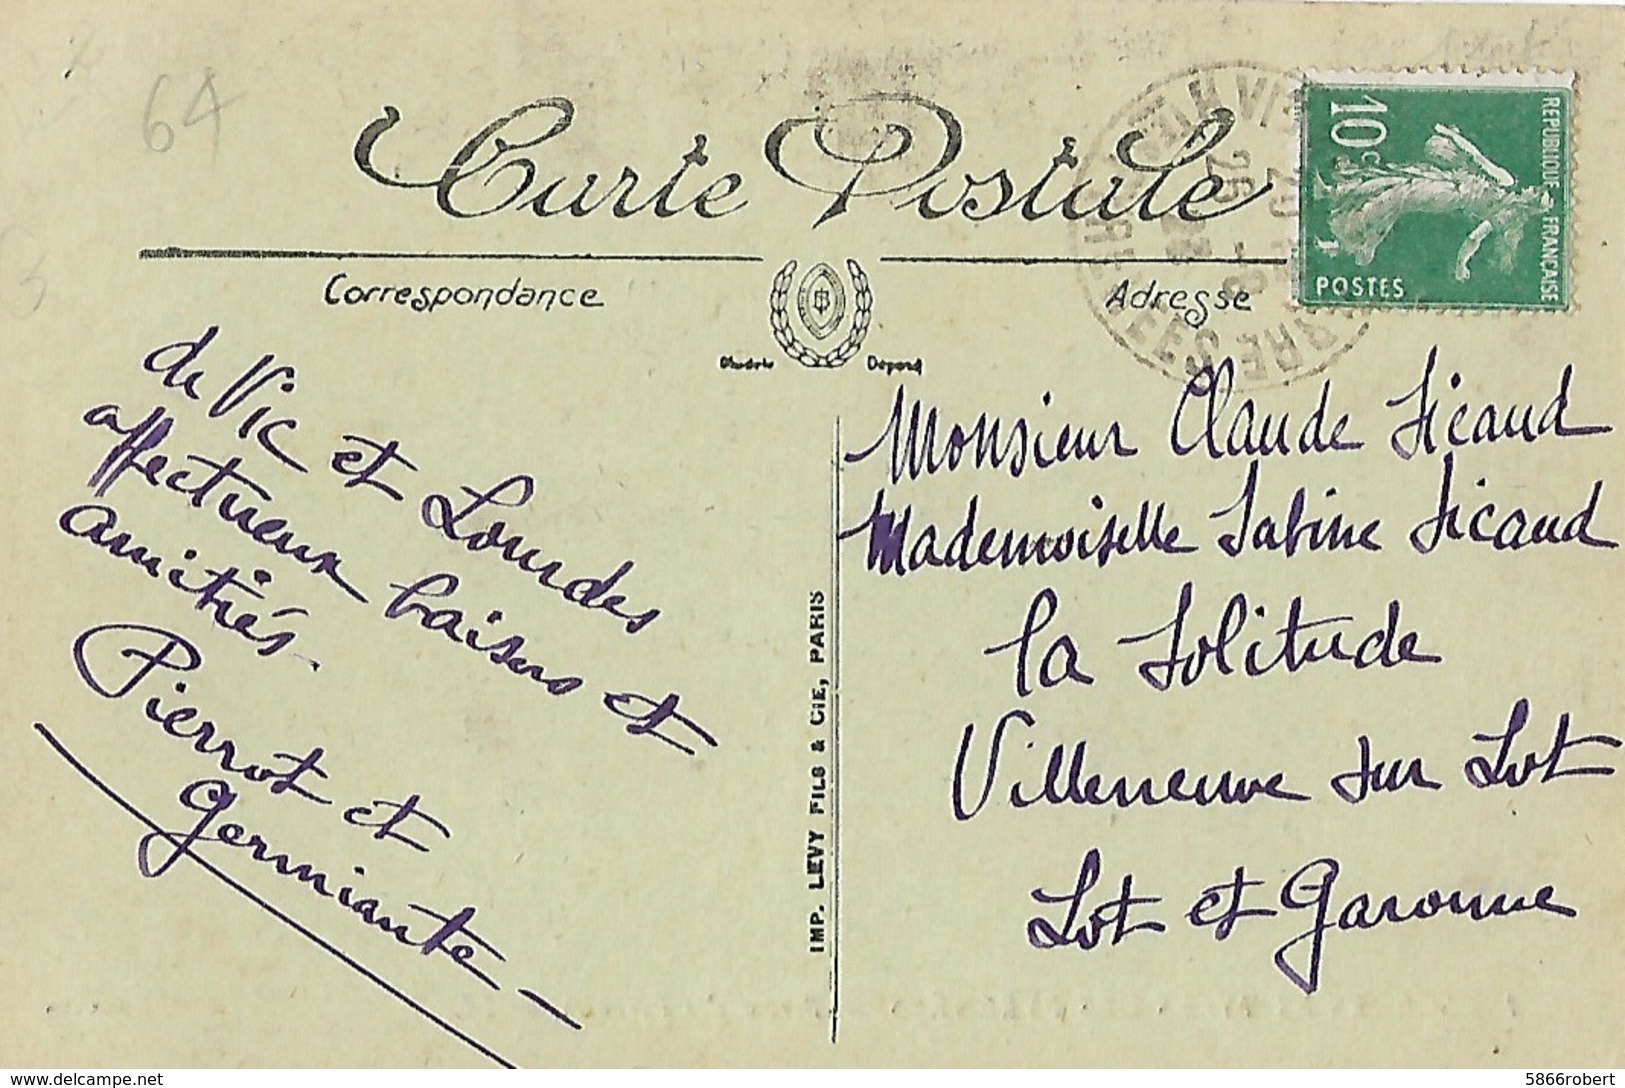 64
Carte Postale
Correspondance
Adresse
REPUBLIQUE FRANÇAISE
10c
POSTES
de Vic et Lourdes
affectueux baisers et
amitiés.
Pierrot et
Germiante
IMP. LEVY FILS & CIE, PARIS
Monsieur Claude Sicaud
Mademoiselle Sabine Sicaud
la Solitude
Villeneuve sur Lot
Lot et Garonne
www.delcampe.net
5866robert